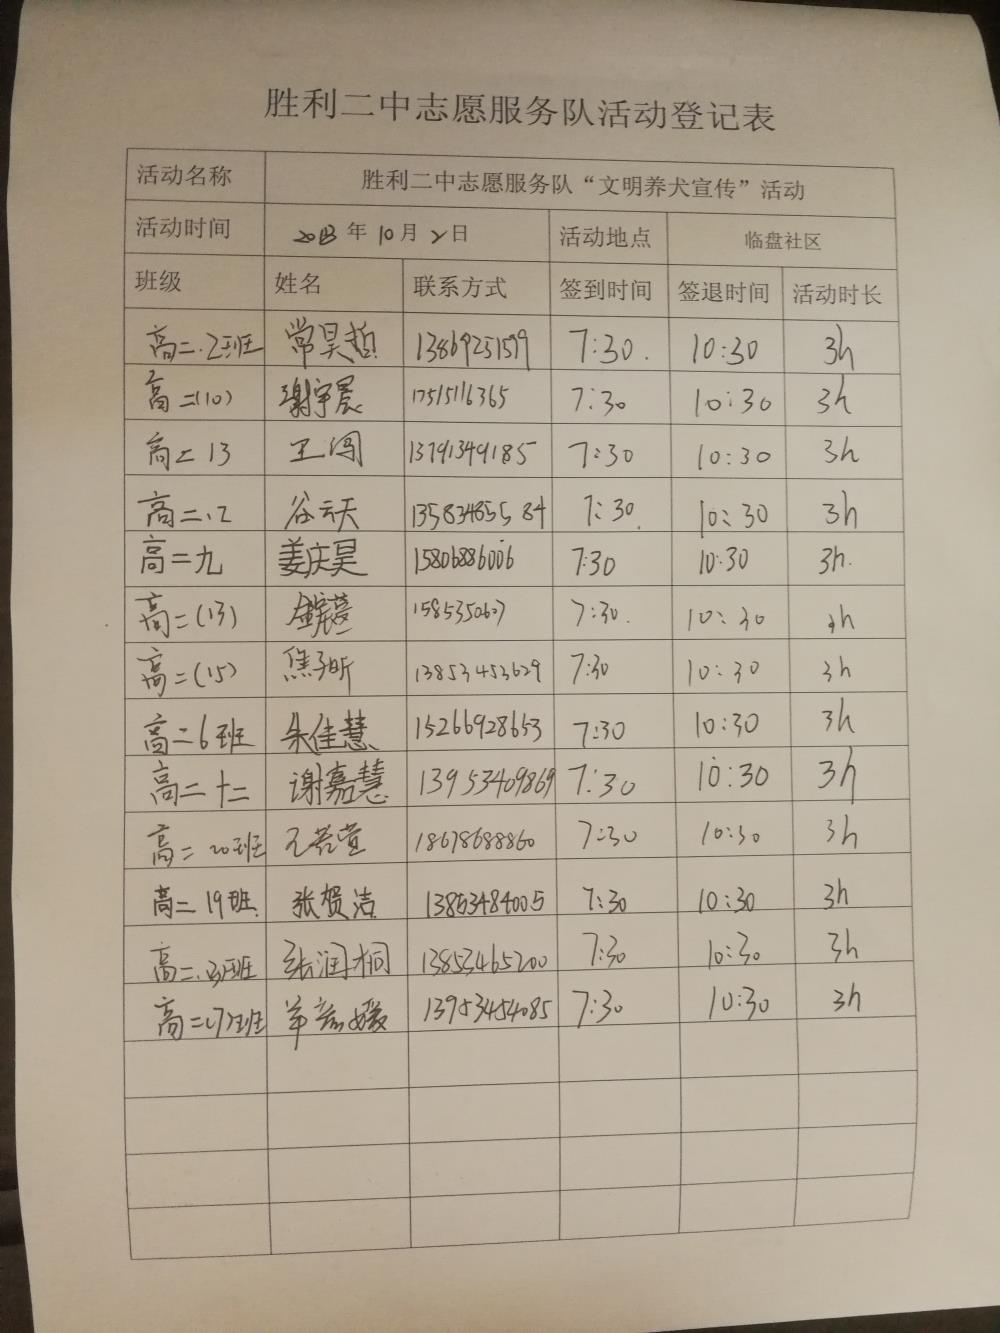 胜利二中志愿服务队活动登记表
活动名称 胜利二中志愿服务队“文明养犬宣传”活动
活动时间 年10月2日 活动地点 临盘社区
班级 姓名 联系方式 签到时间 签退时间 活动时长
高二.2班 常昊哲 13869251579 7:30. 10:30 3h
高二(10) 谢宇晨 17515116365 7:30 10:30 3h
高二13 王闯 13791349185 7:30 10:30 3h
高二.12 谷云天 13583485584 7:30. 10:30 3h
高二九 姜庆昊 15806886006 7:30 10:30 3h.
高二(13) 7:30. 10:30 3h
高二(15) 焦子昕 13853453629 7:30 10:30 3h
高二6班 朱佳慧 15266928653 7:30 10:30 3h
高二十二 谢嘉慧 13953409869 7:30 10:30 3h
高二20班 18678688860 7:30 10:30 3h
高二19班 张贺洁 13853484005 7:30 10:30 3h
高二.13班 张润桐 13853465200 7:30 10:30 3h
高二(7)班 13953454085 7:30 10:30 3h